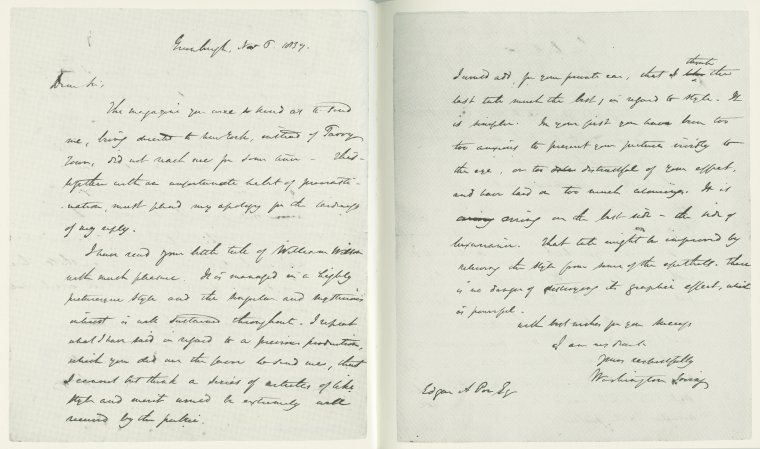 Greenburgh, Nov 6. 1839.
Dear Sir,
The magazine you were so kind as to send
me, being directed to New York, instead of Tarry
Town, did not reach me for some time - This -
together with an unfortunate habit of procrasti-
-nation, must plead my apology for the tardiness
of my reply.
I have read your little tale of William Wilson
with much pleasure. It is managed in a highly
picturesque style and the singular and mysterious
interest is well sustained throughout. I repeat
what I have said in regard to a previous production,
which you did me the favor to send me, that
I cannot but think a series of articles of like
style and merit would be extremely well
received by the public.
think
I could add, for your private ear, that I the
last tale much the best, in regard to style. It
is simpler. In your first you have been too
too anxious to present your picture vividly to
the eye, or too distrustful of your effect,
and have laid on too much colouring. It is
erring on the best side - the side of
luxuriance. That tale might be improved by
relieving the style from some of the epithets. There
is no danger of destroying its graphic effect, which
is powerful.
With best wishes for your success
I am my dear Sir
Yours respectfully
Washington Irving
Edgar A Poe Esq